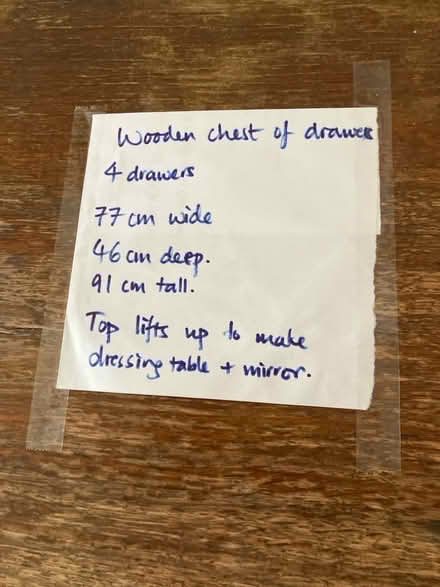 Wooden chest of drawers
4 drawers
77 cm wide
46 cm deep.
91 cm tall.
Top lifts up to make
dressing table + mirror.